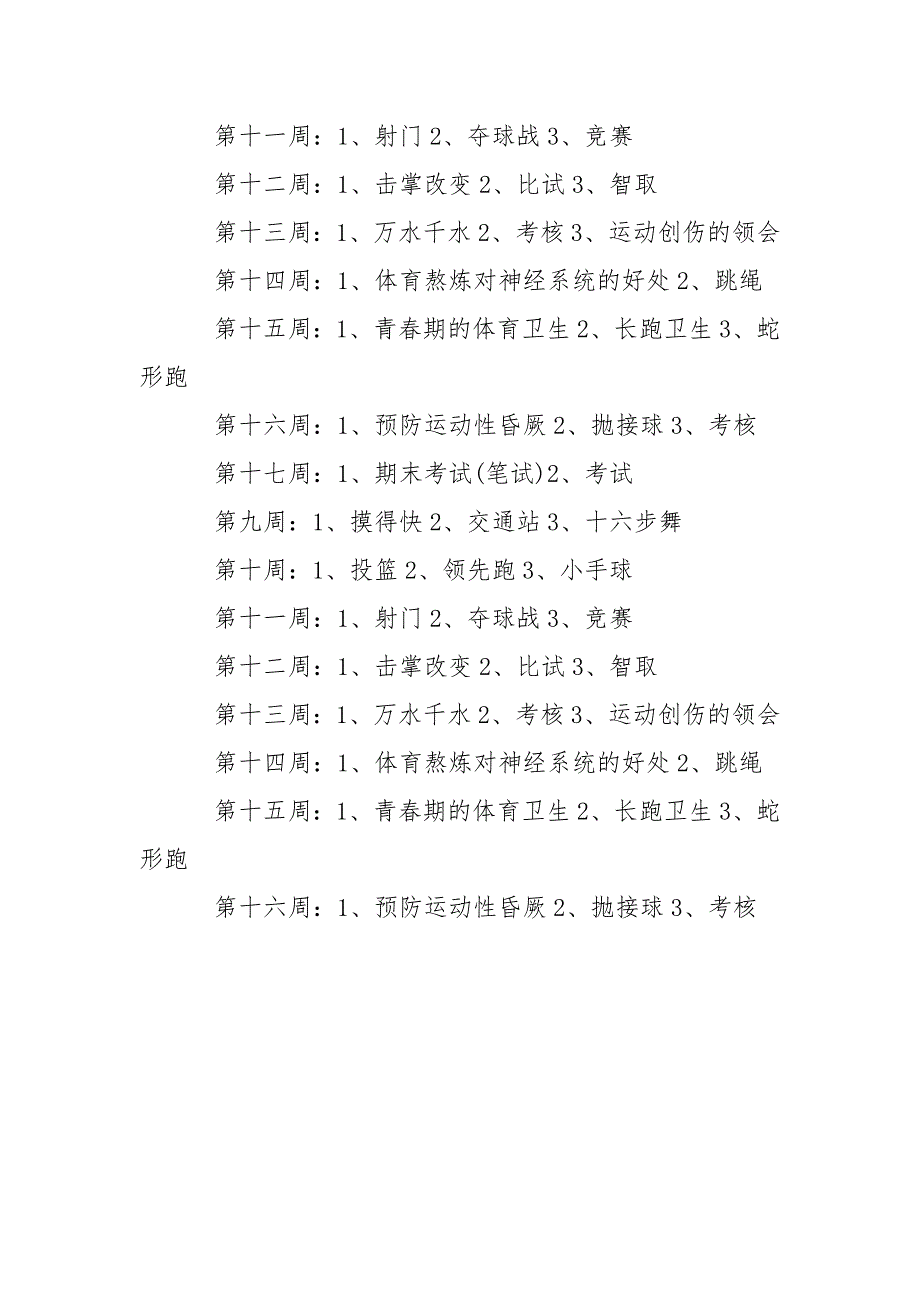 第十一周：1、射门2、夺球战3、竞赛
第十二周：1、击掌改变2、比试3、智取
第十三周：1、万水千水2、考核3、运动创伤的领会
第十四周：1、体育熬炼对神经系统的好处2、跳绳
第十五周：1、青春期的体育卫生2、长跑卫生3、蛇
形跑
第十六周：1、预防运动性昏厥2、抛接球3、考核
第十七周：1、期末考试(笔试)2、考试
第九周：1、摸得快2、交通站3、十六步舞
第十周：1、投篮2、领先跑3、小手球
第十一周：1、射门2、夺球战3、竞赛
第十二周：1、击掌改变2、比试3、智取
第十三周：1、万水千水2、考核3、运动创伤的领会
第十四周：1、体育熬炼对神经系统的好处2、跳绳
第十五周：1、青春期的体育卫生2、长跑卫生3、蛇
形跑
第十六周：1、预防运动性昏厥2、抛接球3、考核